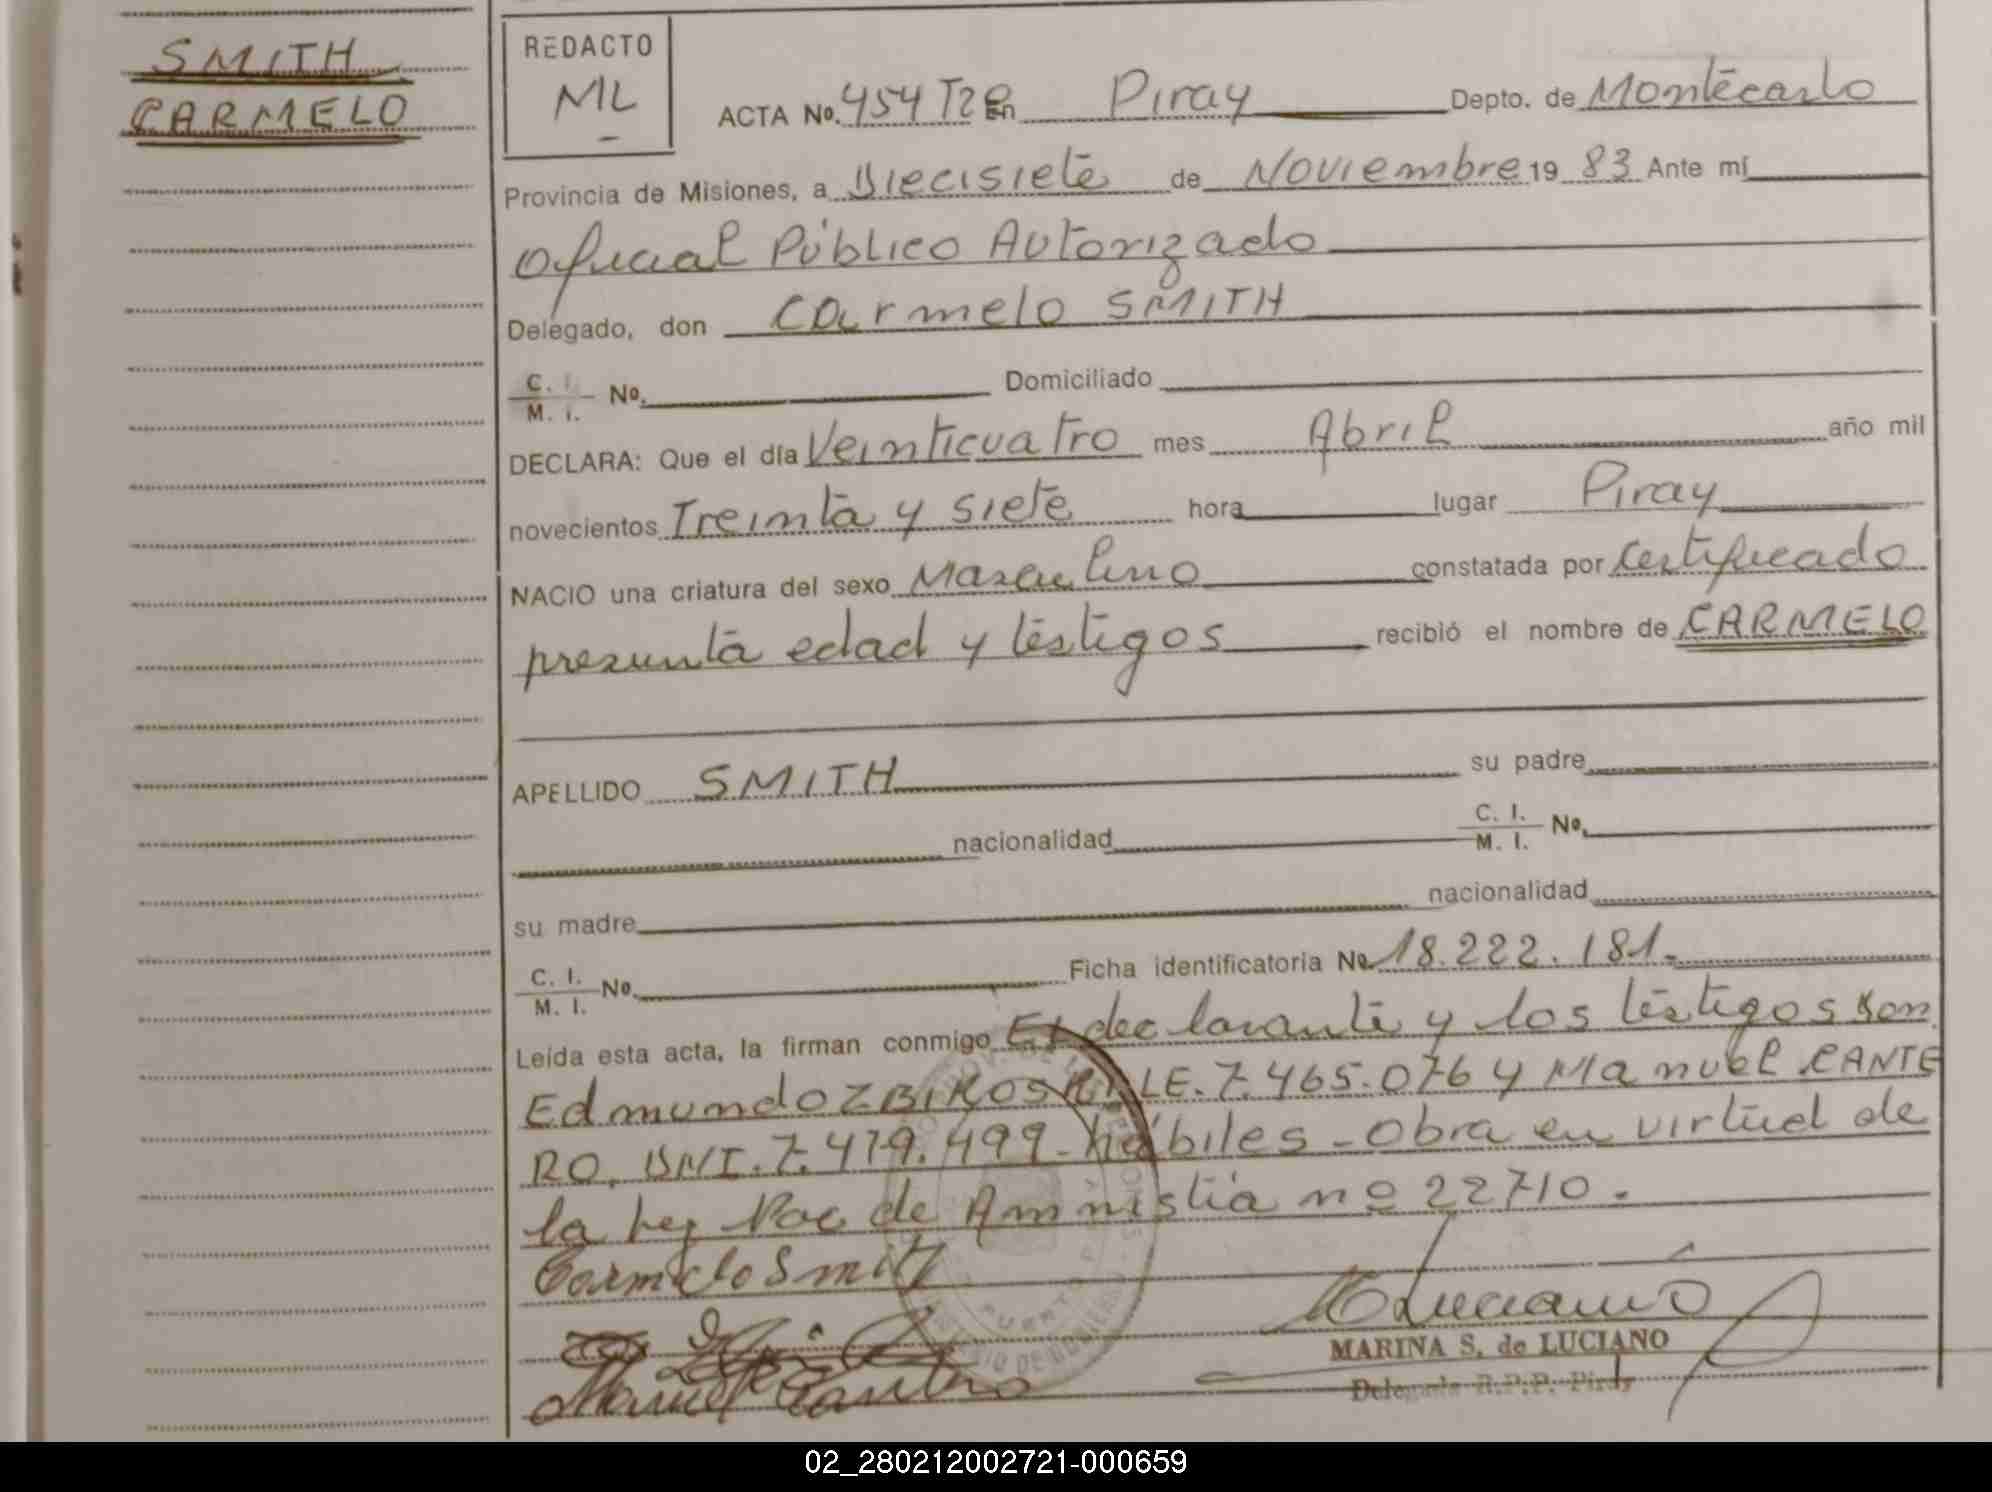 SMITH
CARMELO
REDACTO
ML
ACTA Nº. 454 T2º En Piray Depto. de Montecarlo
Provincia de Misiones, a Diecisiete de Noviembre 19 83 Ante mí
Oficial Público Autorizado
Delegado, don Carmelo SMITH
C. I. / M. I. Nº. Domiciliado
DECLARA: Que el día Veinticuatro mes Abril año mil
novecientos Treinta y siete hora lugar Piray
NACIO una criatura del sexo Masculino constatada por Certificado
presunta edad y testigos recibió el nombre de CARMELO
APELLIDO SMITH su padre
nacionalidad C. I. / M. I. Nº.
su madre nacionalidad
C. I. / M. I. Nº. Ficha identificatoria Nº 18.222.181.-
Leída esta acta, la firman conmigo El declarante y los testigos son
Edmundo ZBIKOSKI LE. 7.465.076 y Manuel CANTE
RO, DNI. 7.479.499- hábiles - Obra en virtud de
la Ley Nac de Amnistia nº 22710.
Carmelo Smith
Manuel Cantero
MARINA S. de LUCIANO
Delegada R.P.P. Piray
02_280212002721-000659